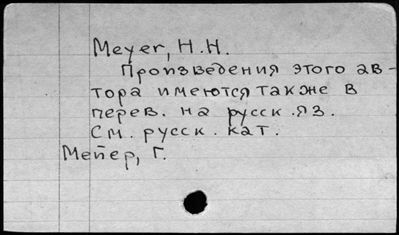 Meyer, H.H.
Произведения этого ав-
тора имеются также в
перев. на русск. яз.
См. русск. кат.
Мейер, Г.